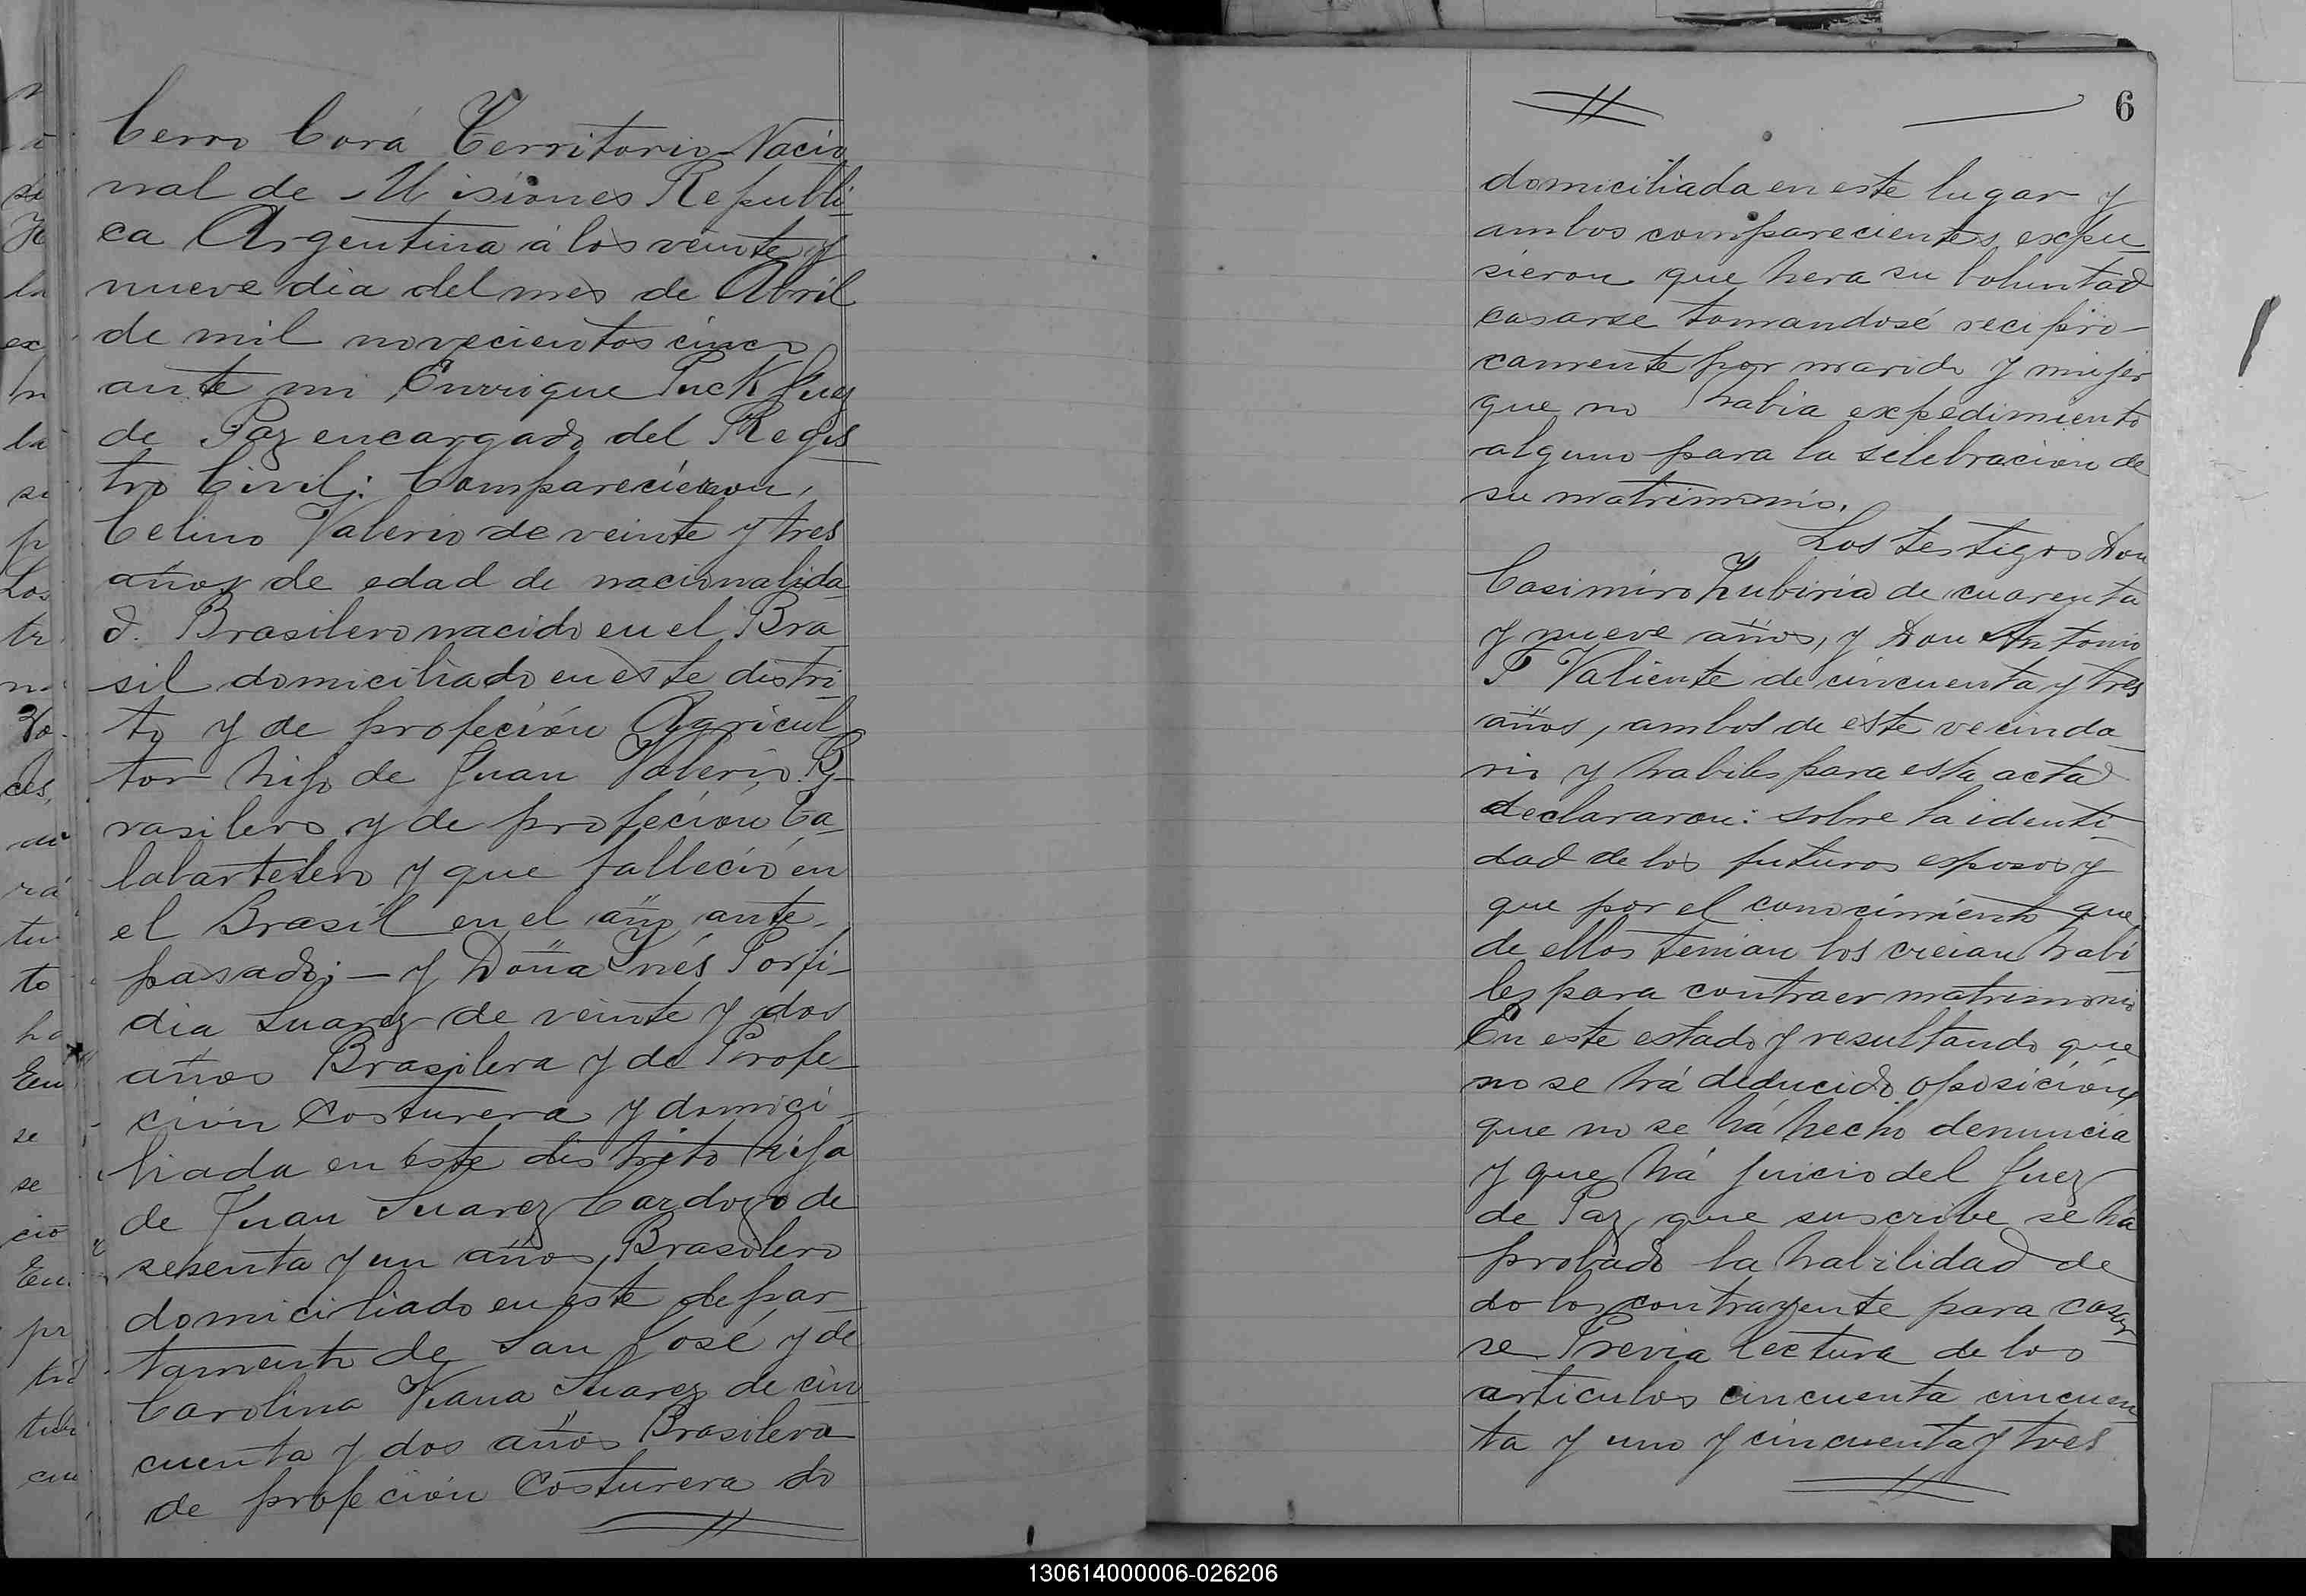 Cerro Corá Territorio Nacio
nal de Misiones Republi
ca Argentina á los veinte y
nueve dia del mes de Abril
de mil novecientos cinco
ante mi Enrrique Puck Juez
de Paz encargado del Regis
tro Civil: Comparecieron,
Celino Valerio de veinte y tres
años de edad de nacionalida
d. Brasilero nacido en el Bra
sil domiciliado en este distri
to y de profeción Agricul
tor hijo de Juan Valerio B
rasilero y de profeción Ta
labartelero y que falleció en
el Brasil en el año ante
pasado; — y Doña Inés Porfi-
dia Suarez de veinte y dos
años Brasilera y de Profe
ción Costurera y domici-
liada en este distrito hija
de Juan Suarez Cardozo de
sesenta y un años, Brasilero
domiciliado en este depar
tamento de San José y de
Carolina Viana Suarez de cin
cuenta y dos años Brasilera
de profeción Costurera do
6
domiciliada en este lugar y
ambos comparecientes, expu
sieron que hera su boluntad
casarse tomandosé recipro-
camente por marido y mujer
que no habia expedimiento
alguno para la selebracion de
su matrimonio.
Los testigos Don
Casimiro Zubiria de cuarenta
y nueve años, y Don Antonio
F Valiente de cincuenta y tres
años, ambos de este vecinda
rio y habiles para esta actad
declararon: sobre la identi
dad de los futuros esposos y
que por el conocimiento que
de ellos tenian los creian habi
les para contraer matrimonio
En este estado y resultando que
no se há deducido oposición,
que no se há hecho denuncia
y que há juicio del Juez
de Paz, que suscribe se há
probado la habilidad de
do los contrayente para casar
se Previa lectura de los
articulos cincuenta cincuen
ta y uno y cincuenta y tres
130614000006-026206